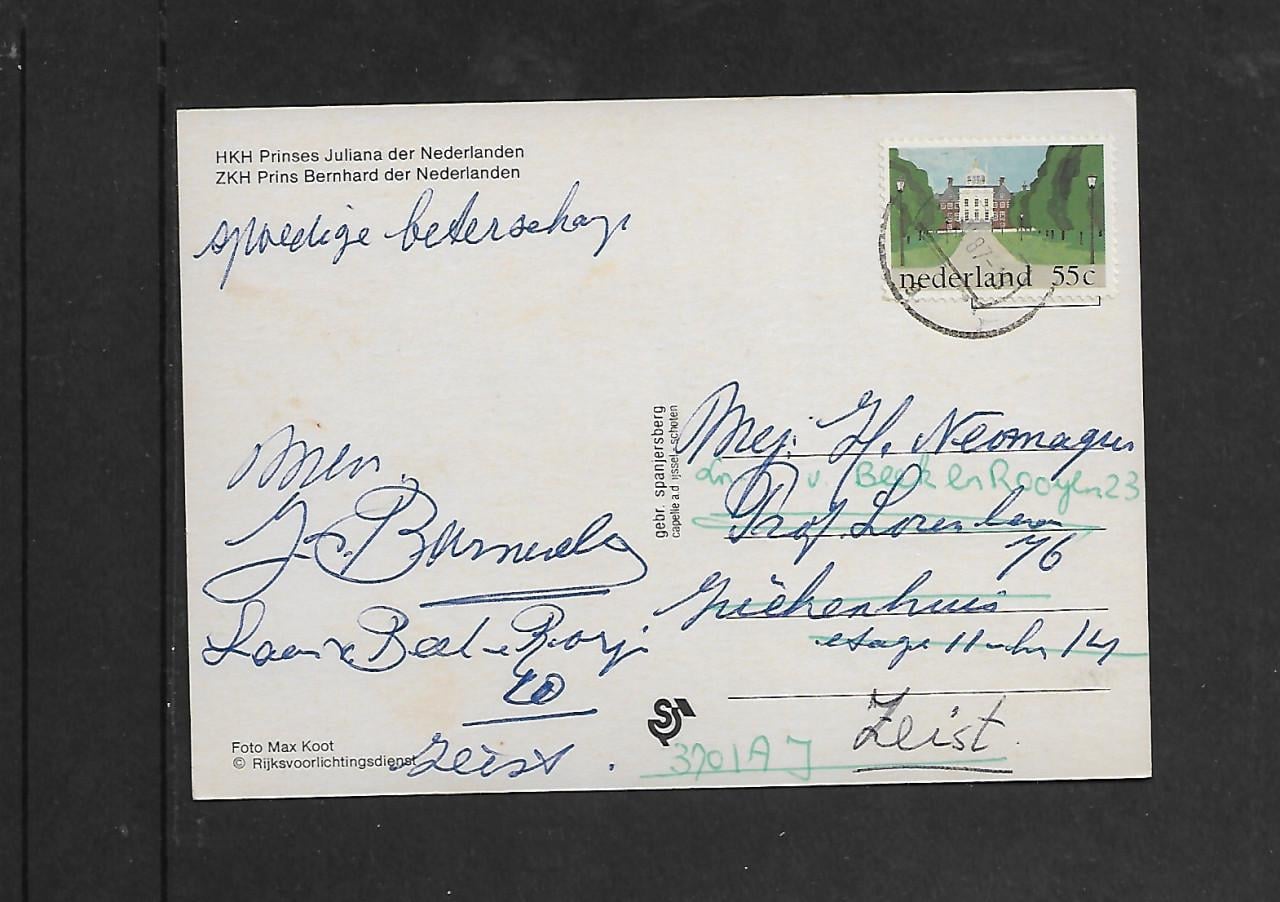 HKH Prinses Juliana der Nederlanden
ZKH Prins Bernhard der Nederlanden
spoedige beterschap
nederland 55c
87
gebr. spanjersberg
capelle a.d. ijssel - schoten
Mej. H. Neomagus
v. Beek en Royen 23
Prof. Lorentzlaan
76
Ziekenhuis
etage 11 14
Zeist
3701AJ
Laan v. Beek e Royj
20
Zeist.
Foto Max Koot
© Rijksvoorlichtingsdienst